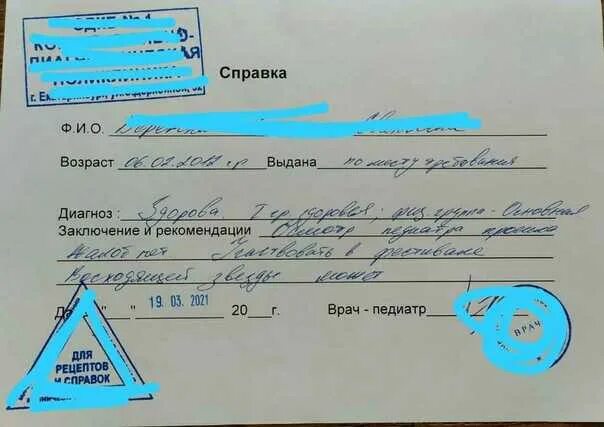 г. Екатеринбург,
Справка
Ф.И.О.
Возраст 06.02.2012 г.р. Выдана по месту требования
Диагноз : Здорова. I гр. здоровья; физ. группа - Основная
Заключение и рекомендации Осмотр педиатра прошла
Жалоб нет Участвовать в фестивале
Восходящей звезды может
" " 19.03.2021 20__г. Врач - педиатр
ВРАЧ
ДЛЯ
РЕЦЕПТОВ
И СПРАВОК